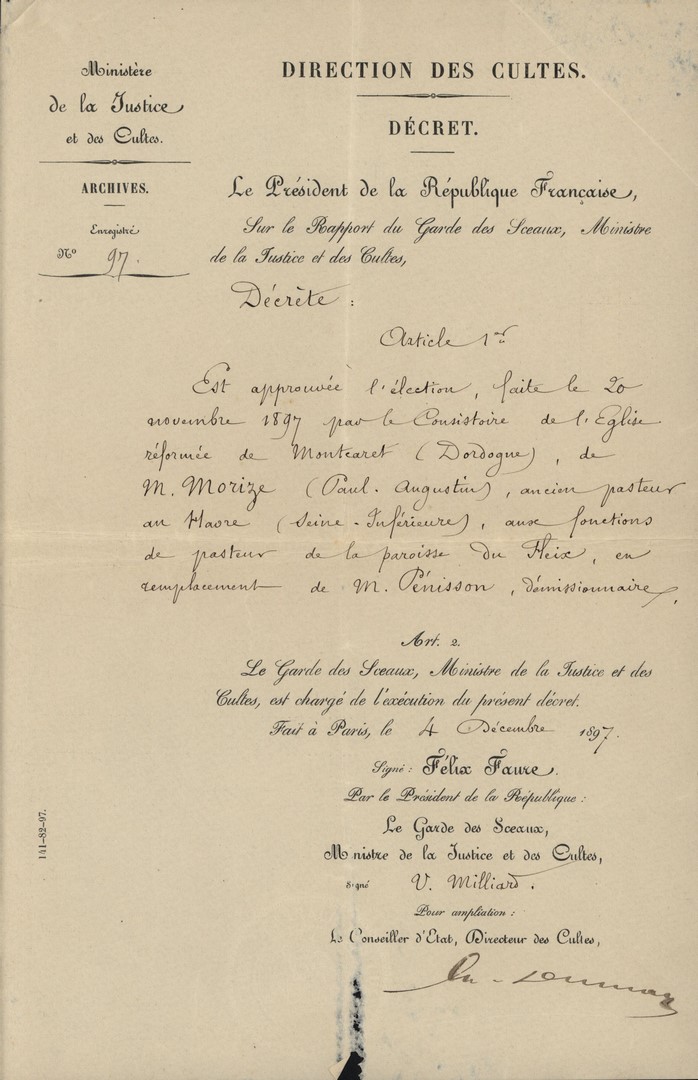 Ministère
de la Justice
et des Cultes.
ARCHIVES.
Enregistré
N° 97.
DIRECTION DES CULTES.
DÉCRET.
Le Président de la République Française,
Sur le Rapport du Garde des Sceaux, Ministre
de la Justice et des Cultes,
Décrète :
Article 1er
Est approuvée l'élection, faite le 20
novembre 1897 par le Consistoire de l'Eglise
réformée de Montcaret (Dordogne), de
M. Morize (Paul-Augustin), ancien pasteur
au Havre (Seine-Inférieure), aux fonctions
de pasteur de la paroisse du Fleix, en
remplacement de M. Pénisson, démissionnaire,
Art. 2.
Le Garde des Sceaux, Ministre de la Justice et des
Cultes, est chargé de l'exécution du présent décret.
Fait à Paris, le 4 Décembre 1897.
Signé : Félix Faure.
Par le Président de la République :
Le Garde des Sceaux,
Ministre de la Justice et des Cultes,
Signé V. Milliard.
Pour ampliation :
Le Conseiller d'État, Directeur des Cultes,
141-82-97.